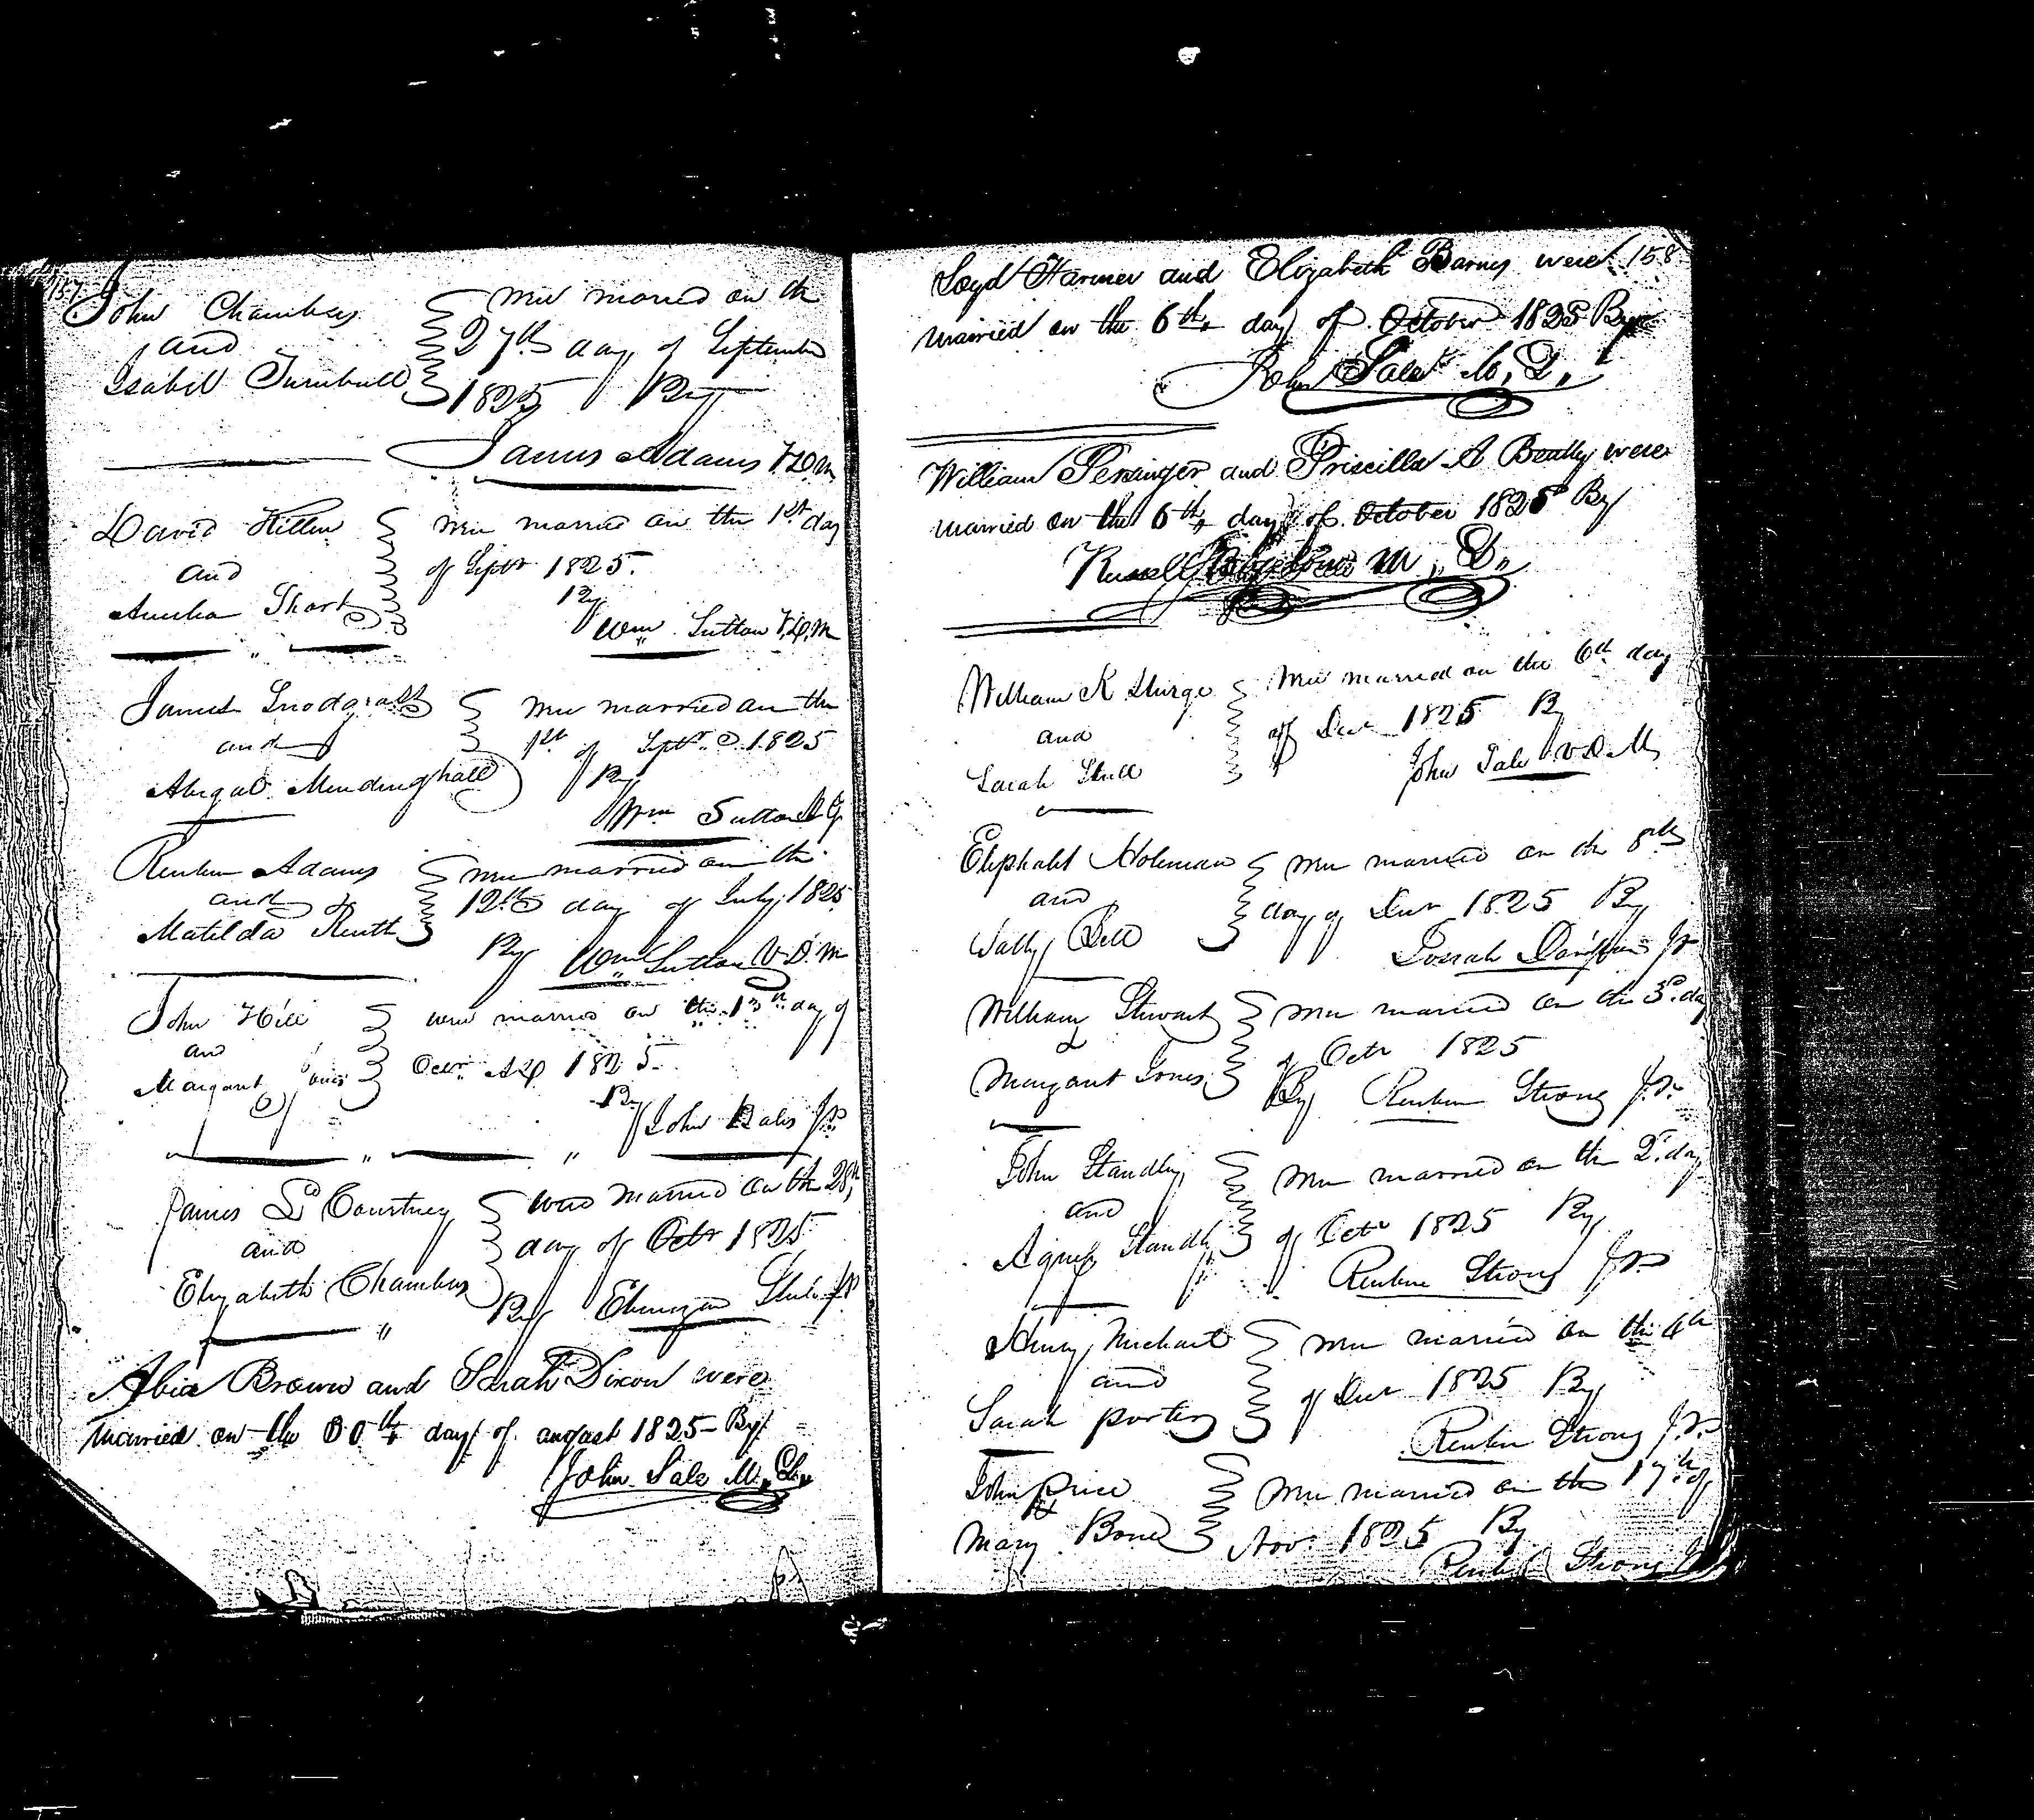 157
John Chambers
and
Isabel Turnbull
were maried on the
27th day of September
1825 By
James Adams V.D.M
David Killen
and
Short
were married on the 1st day
of Septr 1825.
By
Wm Sutton V.D.M
James Snodgrass
and
Abigal Mendinghall
were married on the
1st of Septr 1825
By
Wm Sutton
Reuben Adams
and
Matilda
were married on the
12th day of July 1825
By Wm Sutton V.D.M
John Hill
and
Margaret
were married on the 13th day of
Octr AD 1825.
By
John Bales JP
James Courtney
and
Elizabeth Chambers
were married on the 28th
day of Octr 1825
By Ebenezer JP
Abia Brown and Sarah Dixon were
married on the 30th day of august 1825 By
John Sale M.
158
Loyd Harmer and Elizabeth Barnes were
married on the 6th day of October 1825 By
John Sale M.
William Persinger and Priscilla A Beatty were
married on the 6th day of October 1825 By
Russel Bigelow M. G.
William K Sturge
and
Sarah Stull
were married on the 6th day
of Decr 1825 By
John Sale V.D.M
Eliphalet Holeman
and
Sally Bell
were married on the 8th
day of Decr 1825 By
Josiah Davisson JP
William Stewart
&
Margaret Jones
were married on the 3d day
of Octr 1825
By Reuben Strong J.P.
John Standley
and
Agness Standley
were married on the 2d day
of Octr 1825 By
Reuben Strong JP
Henry Michael
and
Sarah porter
were married on the 4th
of Decr 1825 By
Reuben Strong J.P.
John price
&
Mary Bone
were married on the 17th of
Nov. 1825 By
Reuben Strong